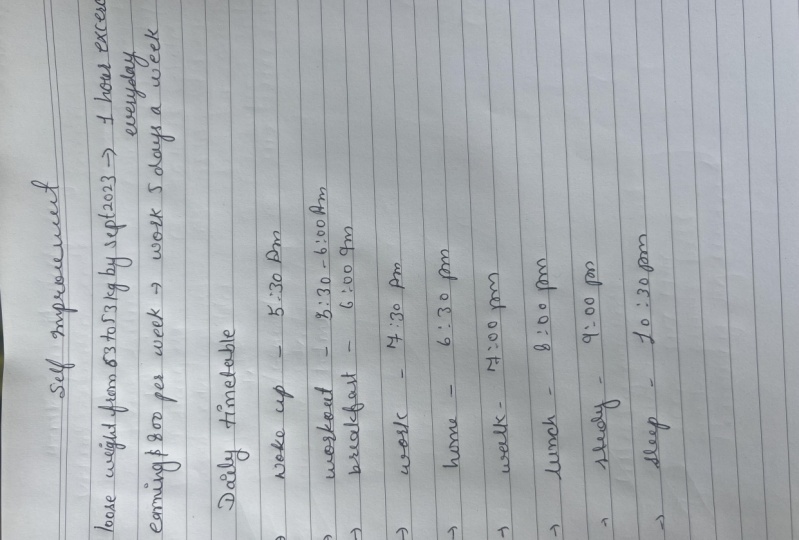 Self Improvement
loose weight from 63 to 53 kg by sept 2023 → 1 hour
everyday
earning $ 800 per week → work 5 days a week
Daily timetable
→ woke up - 5:30 Am
→ workout - 5:30 - 6:00 Am
→ breakfast - 6:00 am
→ work - 7:30 Am
→ home - 6:30 pm
→ walk - 7:00 pm
→ lunch - 8:00 pm
→ study - 9:00 pm
→ sleep - 10:30 pm